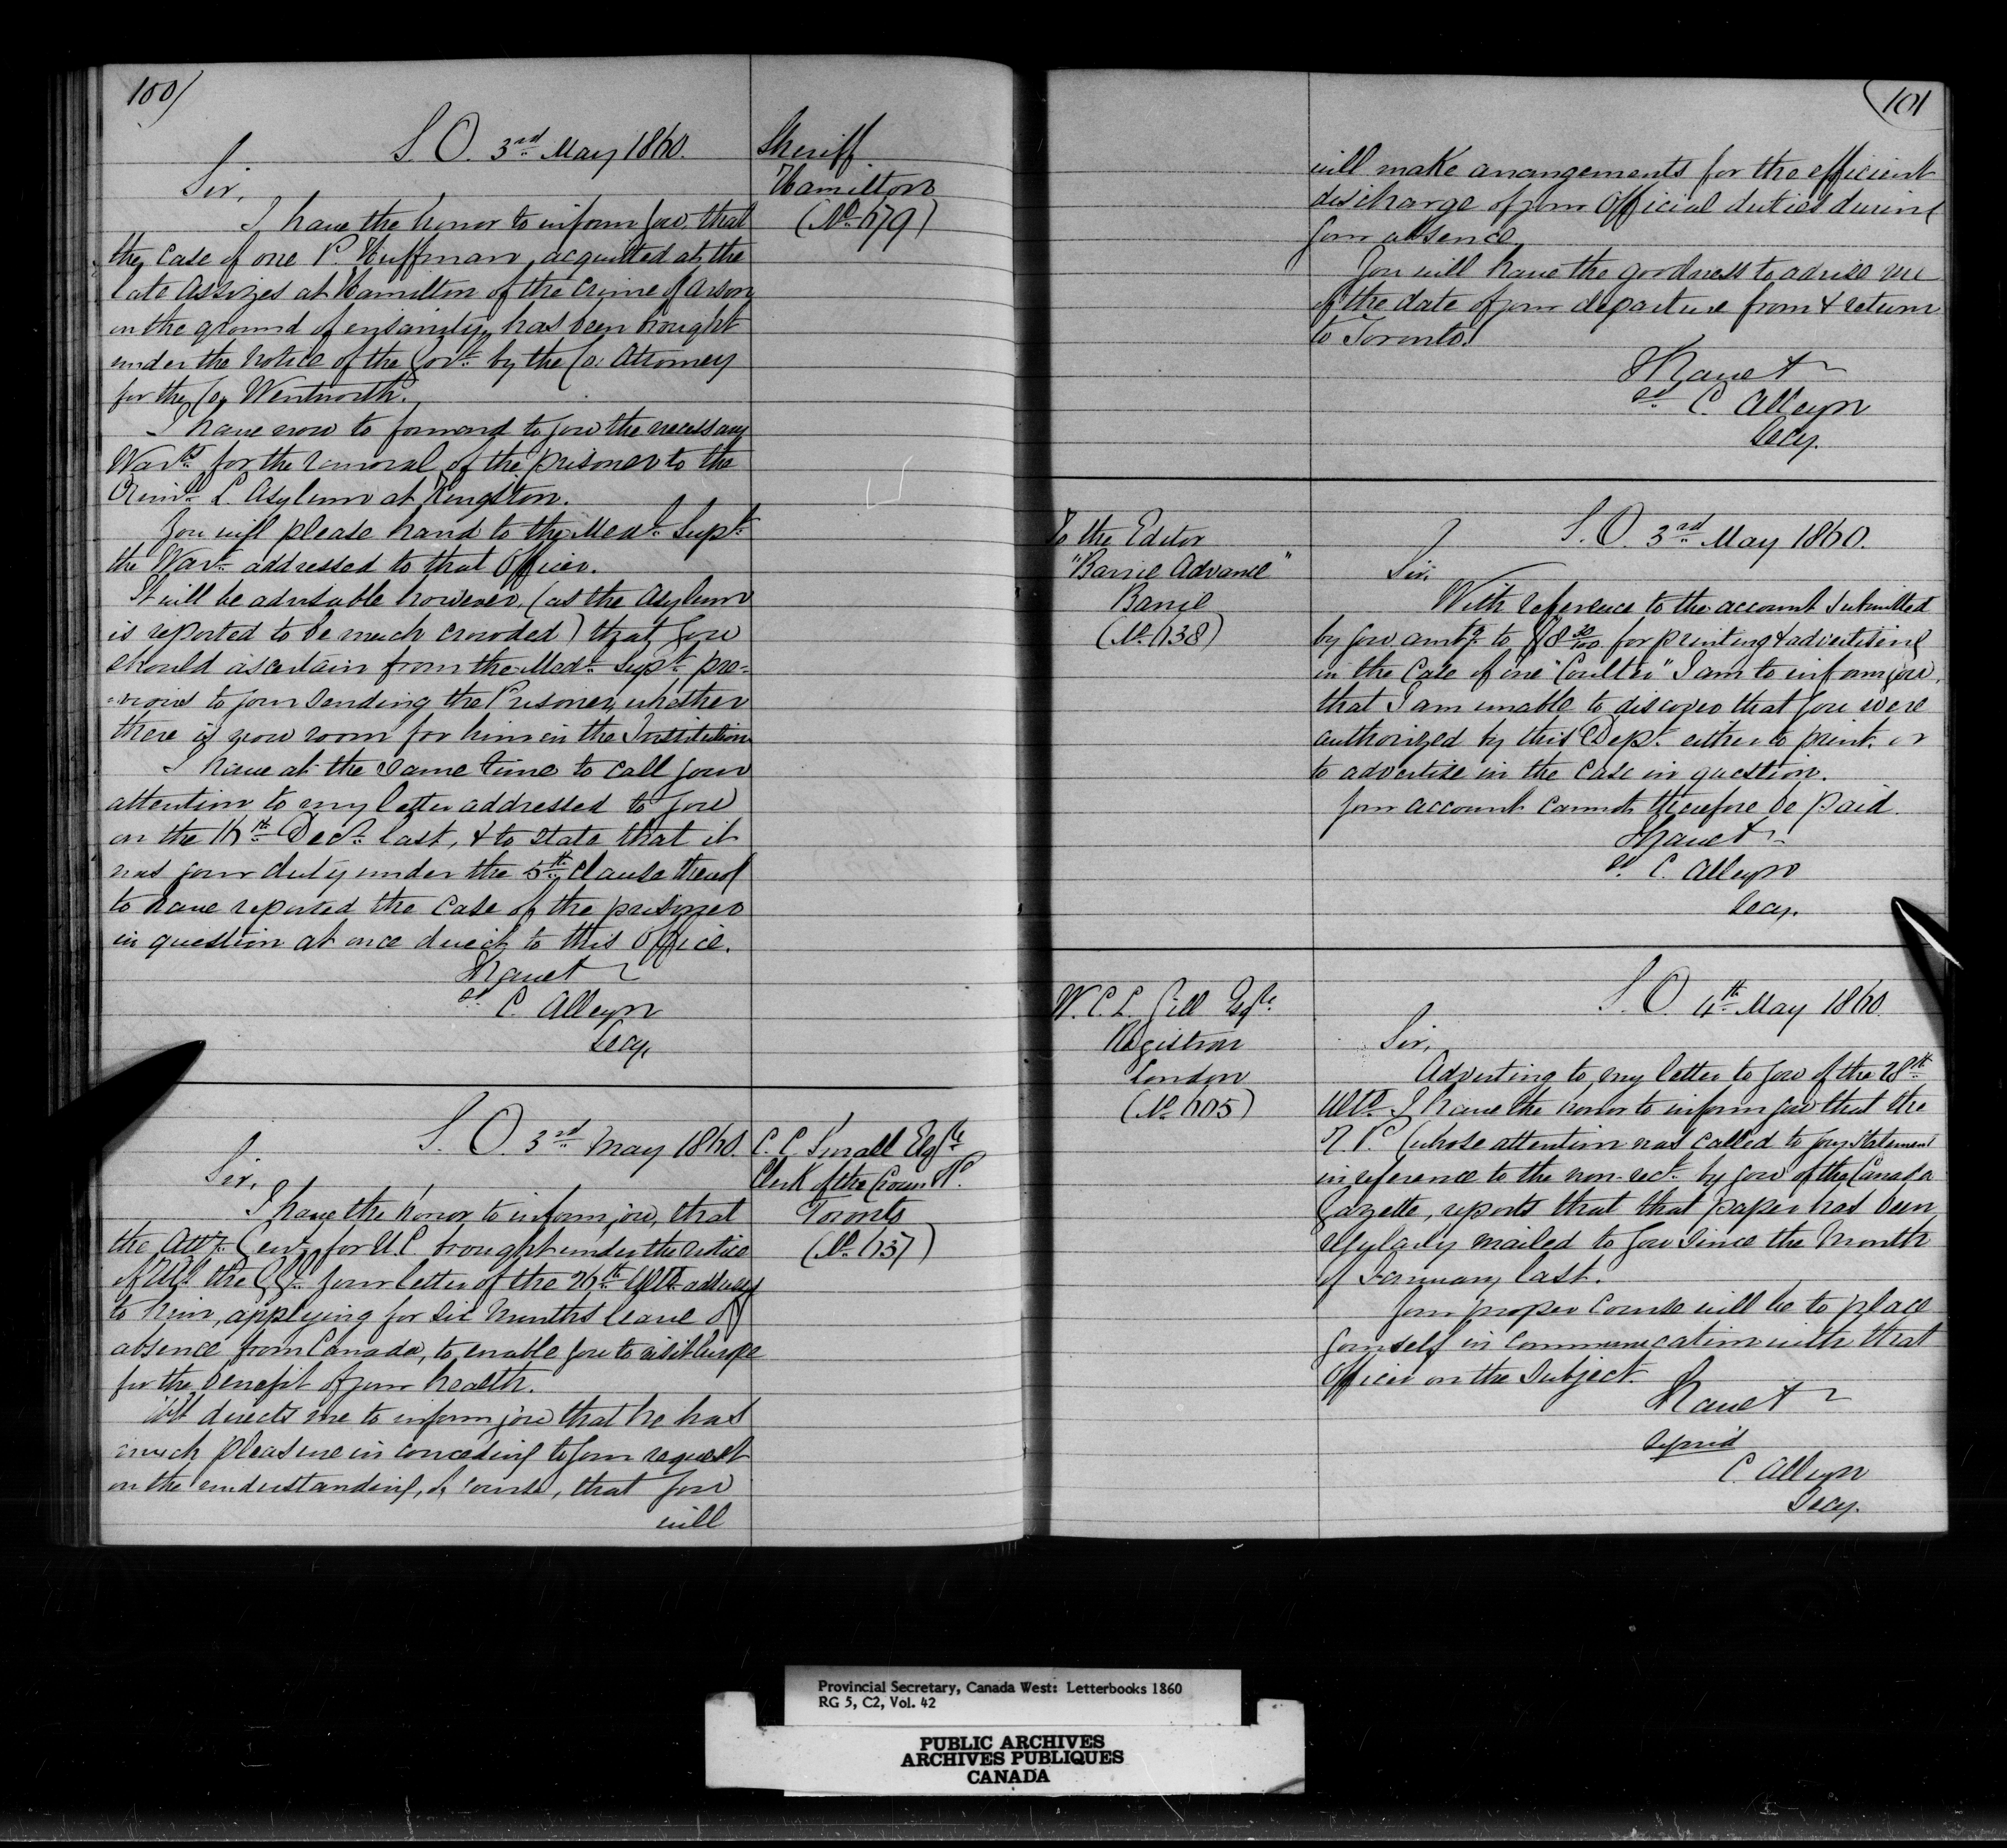 100)
S.O. 3rd May 1860.
Sheriff
Hamilton
(No 679)
Sir,
I have the honor to inform you, that
the case of one P. Huffman, acquitted at the
late Assizes at Hamilton of the crime of Arson
on the ground of insanity, has been brought
under the notice of the Govt. by the Co: Attorney
for the Co. Wentworth.
I have now to forward to you the necessary
Warts. for the removal of the prisoner to the
Criml. L. Asylum at Kingston.
You will please hand to the Medl. Supt.
the Wart. addressed to that Officer.
It will be advisable however, (as the Asylum
is reported to be much crowded) that you
should ascertain from the Medl. Supt. pre-
vious to your sending the Prisoner, whether
there is now room for him in the Institution
I have at the same time to call your
attention to my letter addressed to you
on the 16th Decr. last, & to state that it
was your duty under the 5th Clause thereof
to have reported the case of the prisoner
in question at once direct to this Office.
I have &
sd. C. Alleyn
Secy.
S.O. 3rd May 1860.
C. C. Small Esqre
Clerk of the Crown &c.
Toronto
(No 637)
Sir,
I have the honor to inform you, that
the Atty. Genl. for U.C. brought under the notice
of the your letter of the 26th Ulto. addressed
to him, applying for six months leave of
absence from Canada, to enable you to visit Europe
for the benefit of your health.
directs me to inform you that he has
much pleasure in conceding to your request
on the understanding, of course, that you
will
101
will make arrangements for the efficient
discharge of your Official duties during
your absence.
You will have the goodness to advise me
of the date of your departure from & return
to Toronto.
I have &
sd. C. Alleyn
Secy.
To the Editor
"Barrie Advance"
Barrie
(No 638)
S.O. 3rd May 1860.
Sir,
With reference to the account submitted
by you amtg. to $8 30/100 for printing & advertising
in the case of one "Coulter" I am to inform you,
that I am unable to discover that you were
authorized by this Dept. either to print or
to advertise in the case in question.
Your account cannot therefore be paid.
I have &
sd. C. Alleyn
Secy.
W. C. L. Gill Esqre.
Registrar
London
(No 605)
S.O. 4th May 1860.
Sir,
Adverting to my letter to you of the 28th
Ulto. I have the honor to inform you that the
Q.P. (whose attention was called to your statement
in reference to the non-rect. by you of the Canada
Gazette, reports that that paper has been
regularly mailed to you since the month
of January last.
Your proper course will be to place
yourself in communication with that
Officer on the subject.
I have &
signed
C. Alleyn
Secy.
Provincial Secretary, Canada West: Letterbooks 1860
RG 5, C2, Vol. 42
PUBLIC ARCHIVES
ARCHIVES PUBLIQUES
CANADA